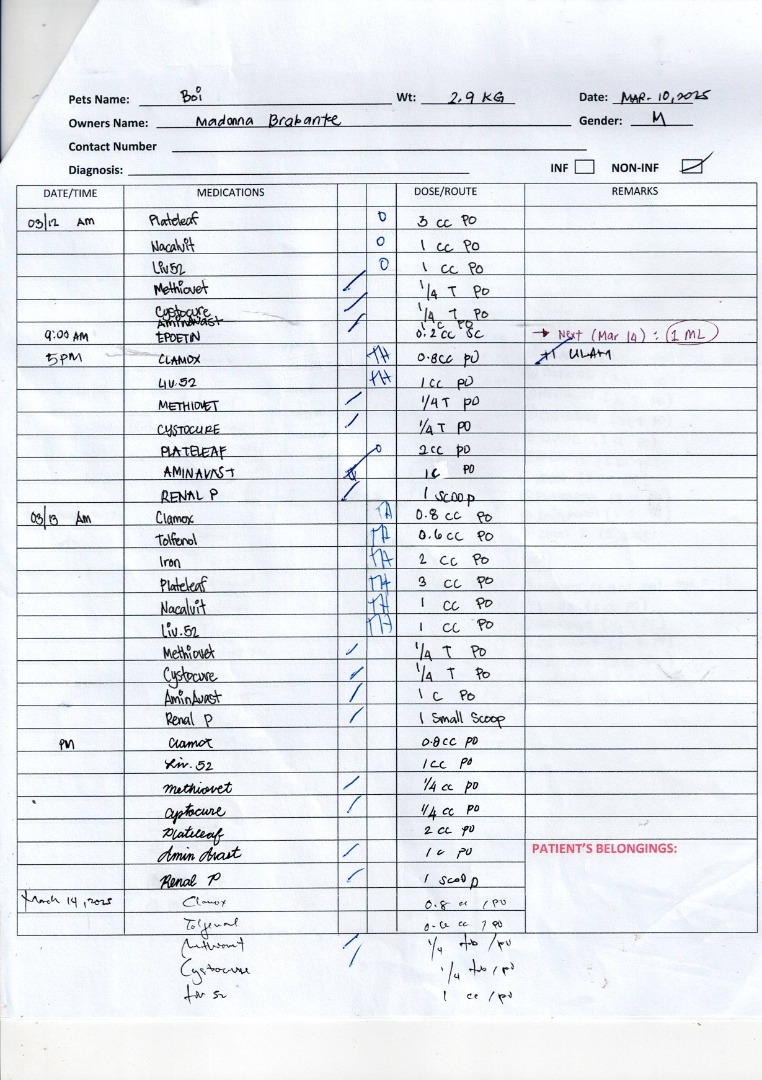 Pets Name: Boi Wt: 2.9 KG Date: MAR. 10, 2025
Owners Name: Madonna Brabante Gender: M
Contact Number
Diagnosis: INF NON-INF
DATE/TIME MEDICATIONS DOSE/ROUTE REMARKS
03/12 AM Plateleaf O 3 cc PO
Nacalvit O 1 cc PO
Liv52 O 1 cc PO
Methiovet 1/4 T PO
Cystocure 1/4 T PO
Aminavast 1 C PO
9:00 AM EPOETIN 0.2 cc SC → Next (Mar 14) : 1 ML
5PM CLAMOX TA 0.8cc PO ULAM
LIV.52 TA 1cc PO
METHIOVET 1/4 T PO
CYSTOCURE 1/4 T PO
PLATELEAF O 2cc PO
AMINAVAST 1c PO
RENAL P 1 scoop
03/13 AM Clamox TA 0.8 cc PO
Tolfenol TA 0.6 cc PO
Iron TA 2 cc PO
Plateleaf TA 3 cc PO
Nacalvit TA 1 cc PO
Liv.52 TA 1 cc PO
Methiovet 1/4 T PO
Cystocure 1/4 T PO
AminAvast 1 C PO
Renal P 1 Small Scoop
PM Clamox 0.8cc PO
Liv. 52 1cc PO
methiovet 1/4 cc PO
cyptocure 1/4 cc PO
Plateleaf 2 cc PO
Amin Avast 1c PO
PATIENT'S BELONGINGS:
Renal P 1 scoop
March 14, 2025 Clamox 0.8 cc /PO
Tolfenol 0.6 cc /PO
Methiovet 1/4 tab /PO
Cystocure 1/4 tab /PO
Liv 52 1 cc /PO